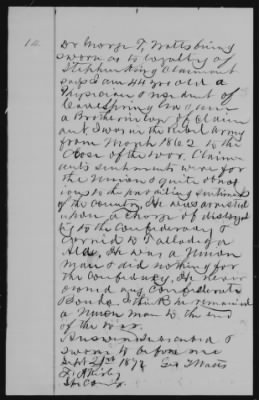 14.
Dr George T, Watts being
sworn as to loyalty of
Stephen King Claimant
says I am 44 years old a
Physician & resident of
Cave Spring Ga & am
a Brother in law of Claim
ant. I was in the Rebel Army
from March 1862 to the
Close of the war. Claim
ants sentiments were for
the Union & quite obnox
ious to the prevailing sentiment
of the Country. He was arrested
upon a charge of disloyal
ty to the Confederacy &
Carried to Talladega
Ala, He was a Union
Man & did nothing for
the Confedcy, He never
owned any Confederate
Bonds. I think he remained
a Union man to the end
of the War.
Answered & subscribed &
sworn to before me
Sept 21st 187 Geo T Watts